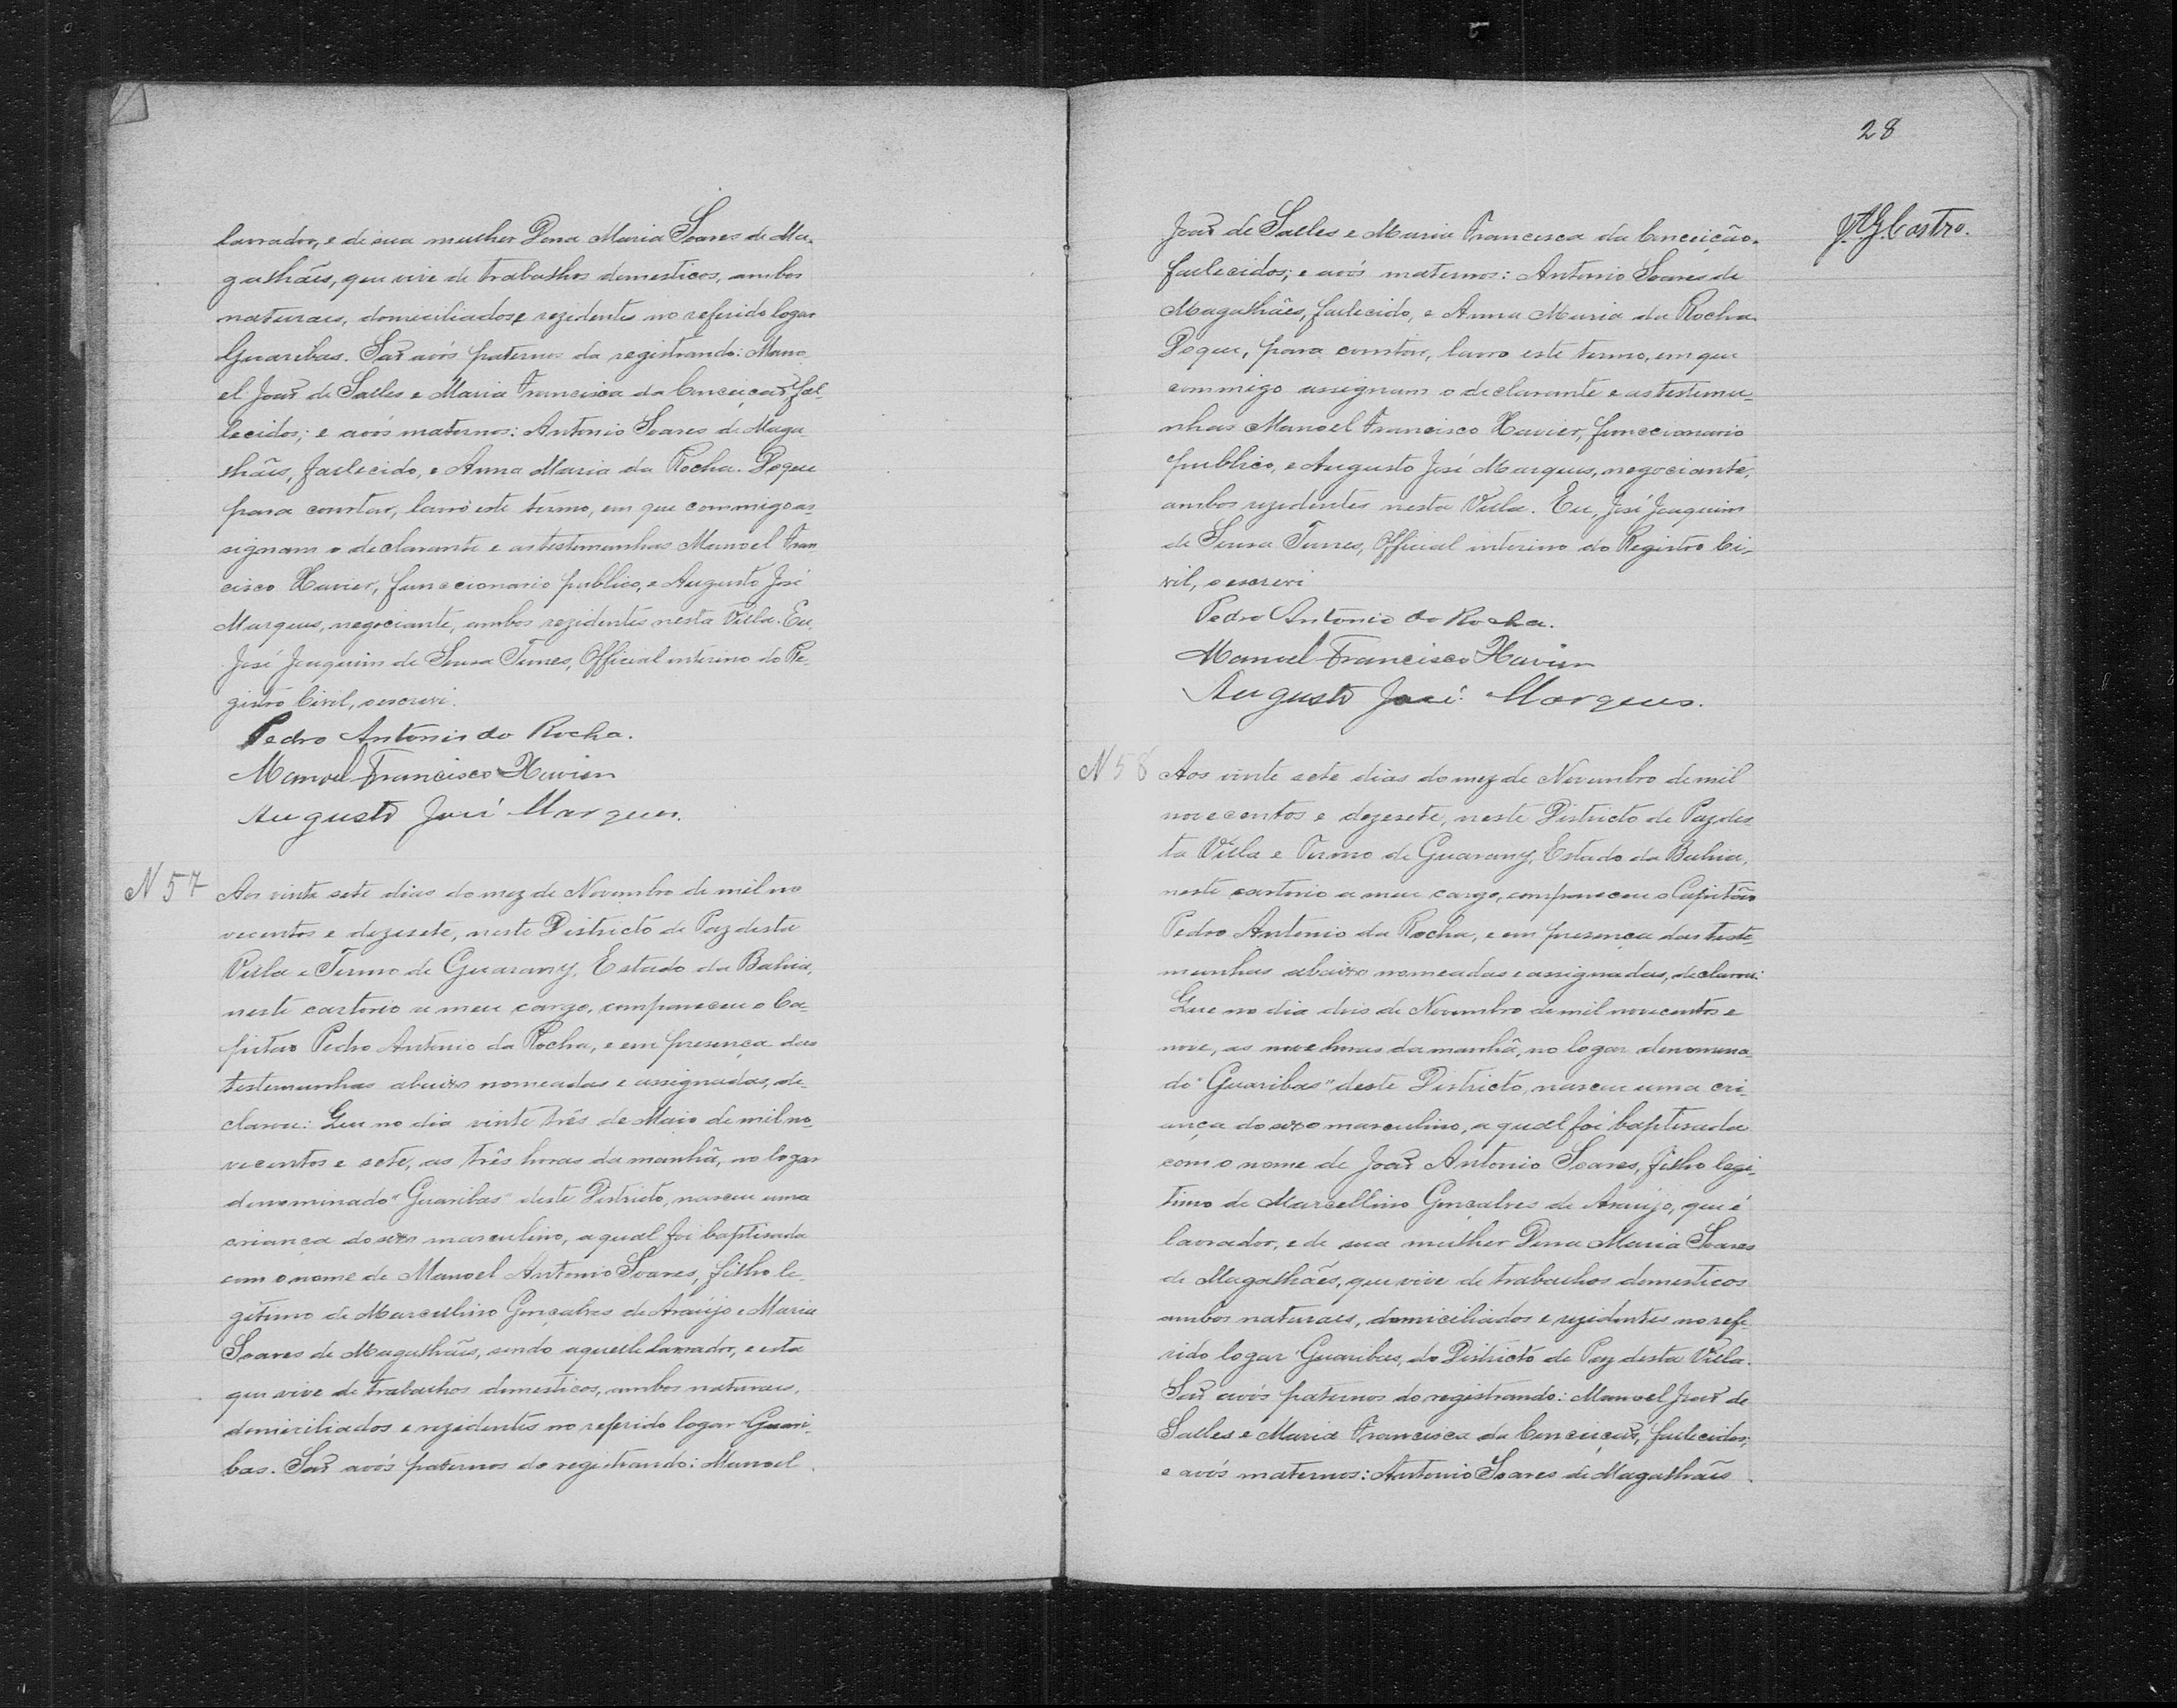 lavrador, e de sua mulher Dona Maria Soares de Ma-
galhães, que vive de trabalhos domesticos, ambos
naturaes, domiciliados e rezidentes no referido logar
Guaribas. Saõ avós paternos da registrando: Mano-
el Joaõ de Salles e Maria Francisca da Conceiçaõ, fal-
lecidos; e avós maternos: Antonio Soares de Maga-
lhães, fallecido, e Anna Maria da Rocha. Do que
para constar, lavro este termo, em que commigo as-
signam o declarante e as testemunhas Manoel Fran
cisco Xavier, funccionario publico, e Augusto José
Marques, negociante, ambos rezidentes nesta Villa. Eu,
José Joaquim de Sousa Tunes, Official interino do Re-
gistro Civil, o escrevi.
Pedro Antonio da Rocha.
Manoel Francisco Xavier
Augusto José Marques.
N 57
Aos vinte sete dias do mez de Novembro de mil no
vecentos e dezesete, neste Districto de Paz desta
Villa e Termo de Guarany, Estado da Bahia,
neste cartorio a meu cargo, compareceu o Ca-
pitaõ Pedro Antonio da Rocha, e em presença das
testemunhas abaixo nomeadas e assignadas, de-
clarou: Que no dia vinte três de Maio de mil no-
vecentos e sete, as três horas da manhã, no logar
denominado "Guaribas" deste Districto, nasceu uma
criança do sexo masculino, a qual foi baptisada
com o nome de Manoel Antonio Soares, filho le-
gitimo de Marcellino Gonçalves de Araújo e Maria
Soares de Magalhães, sendo aquelle lavrador, e esta
que vive de trabalhos domesticos, ambos naturaes,
domiciliados e rezidentes no referido logar Guari-
bas. Saõ avós paternos do registrando: Manoel
28
J. A. G. Castro.
Joaõ de Salles e Maria Francisca da Conceição,
fallecidos; e avós maternos: Antonio Soares de
Magalhães, fallecido, e Anna Maria da Rocha.
Do que, para constar, lavro este termo, em que
commigo assignam o declarante e as testemu-
nhas Manoel Francisco Xavier, funccionario
publico, e Augusto José Marques, negociante,
ambos rezidentes nesta Villa. Eu, José Joaquim
de Sousa Tunes, Official interino do Registro Ci-
vil, o escrevi
Pedro Antonio da Rocha.
Manoel Francisco Xavier
Augusto José Marques.
N 58
Aos vinte sete dias do mez de Novembro de mil
novecentos e dezesete, neste Districto de Paz des
ta Villa e Termo de Guarany, Estado da Bahia,
neste cartorio a meu cargo, compareceu o Capitão
Pedro Antonio da Rocha, e em presença das teste
munhas abaixo nomeadas e assignadas, declarou:
Que no dia dois de Novembro de mil novecentos e
nove, as nove horas da manhã, no logar denomina-
do "Guaribas" deste Districto, nasceu uma cri-
ança do sexo masculino, a qual foi baptisada
com o nome de Joaõ Antonio Soares, filho legi-
timo de Marcellino Gonçalves de Araujo, que é
lavrador, e de sua mulher Dona Maria Soares
de Magalhães, que vive de trabalhos domesticos
ambos naturaes, domiciliados e rezidentes no refe-
rido logar Guaribas, do Districto de Paz desta Villa.
Saõ avós paternos do registrando: Manoel Joaõ de
Salles e Maria Francisca da Conceiçaõ, fallecidos;
e avós maternos: Antonio Soares de Magalhães